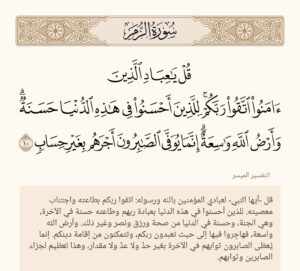 سُورَةُ الزُّمَرِ
قُلْ يَٰعِبَادِ ٱلَّذِينَ
ءَامَنُوا۟ ٱتَّقُوا۟ رَبَّكُمْ ۚ لِلَّذِينَ أَحْسَنُوا۟ فِى هَٰذِهِ ٱلدُّنْيَا حَسَنَةٌ ۗ
وَأَرْضُ ٱللَّهِ وَٰسِعَةٌ ۗ إِنَّمَا يُوَفَّى ٱلصَّٰبِرُونَ أَجْرَهُم بِغَيْرِ حِسَابٍ ١٠
التفسير الميسر
قل -أيها النبي- لعبادي المؤمنين بالله ورسوله: اتقوا ربكم بطاعته واجتناب
معصيته. للذين أحسنوا في هذه الدنيا بعبادة ربهم وطاعته حسنة في الآخرة،
وهي الجنة، وحسنة في الدنيا من صحة ورزق ونصر وغير ذلك. وأرض الله
واسعة، فهاجروا فيها إلى حيث تعبدون ربكم، وتتمكنون من إقامة دينكم. إنما
يُعطى الصابرون ثوابهم في الآخرة بغير حدّ ولا عدّ ولا مقدار، وهذا تعظيم لجزاء
الصابرين وثوابهم.